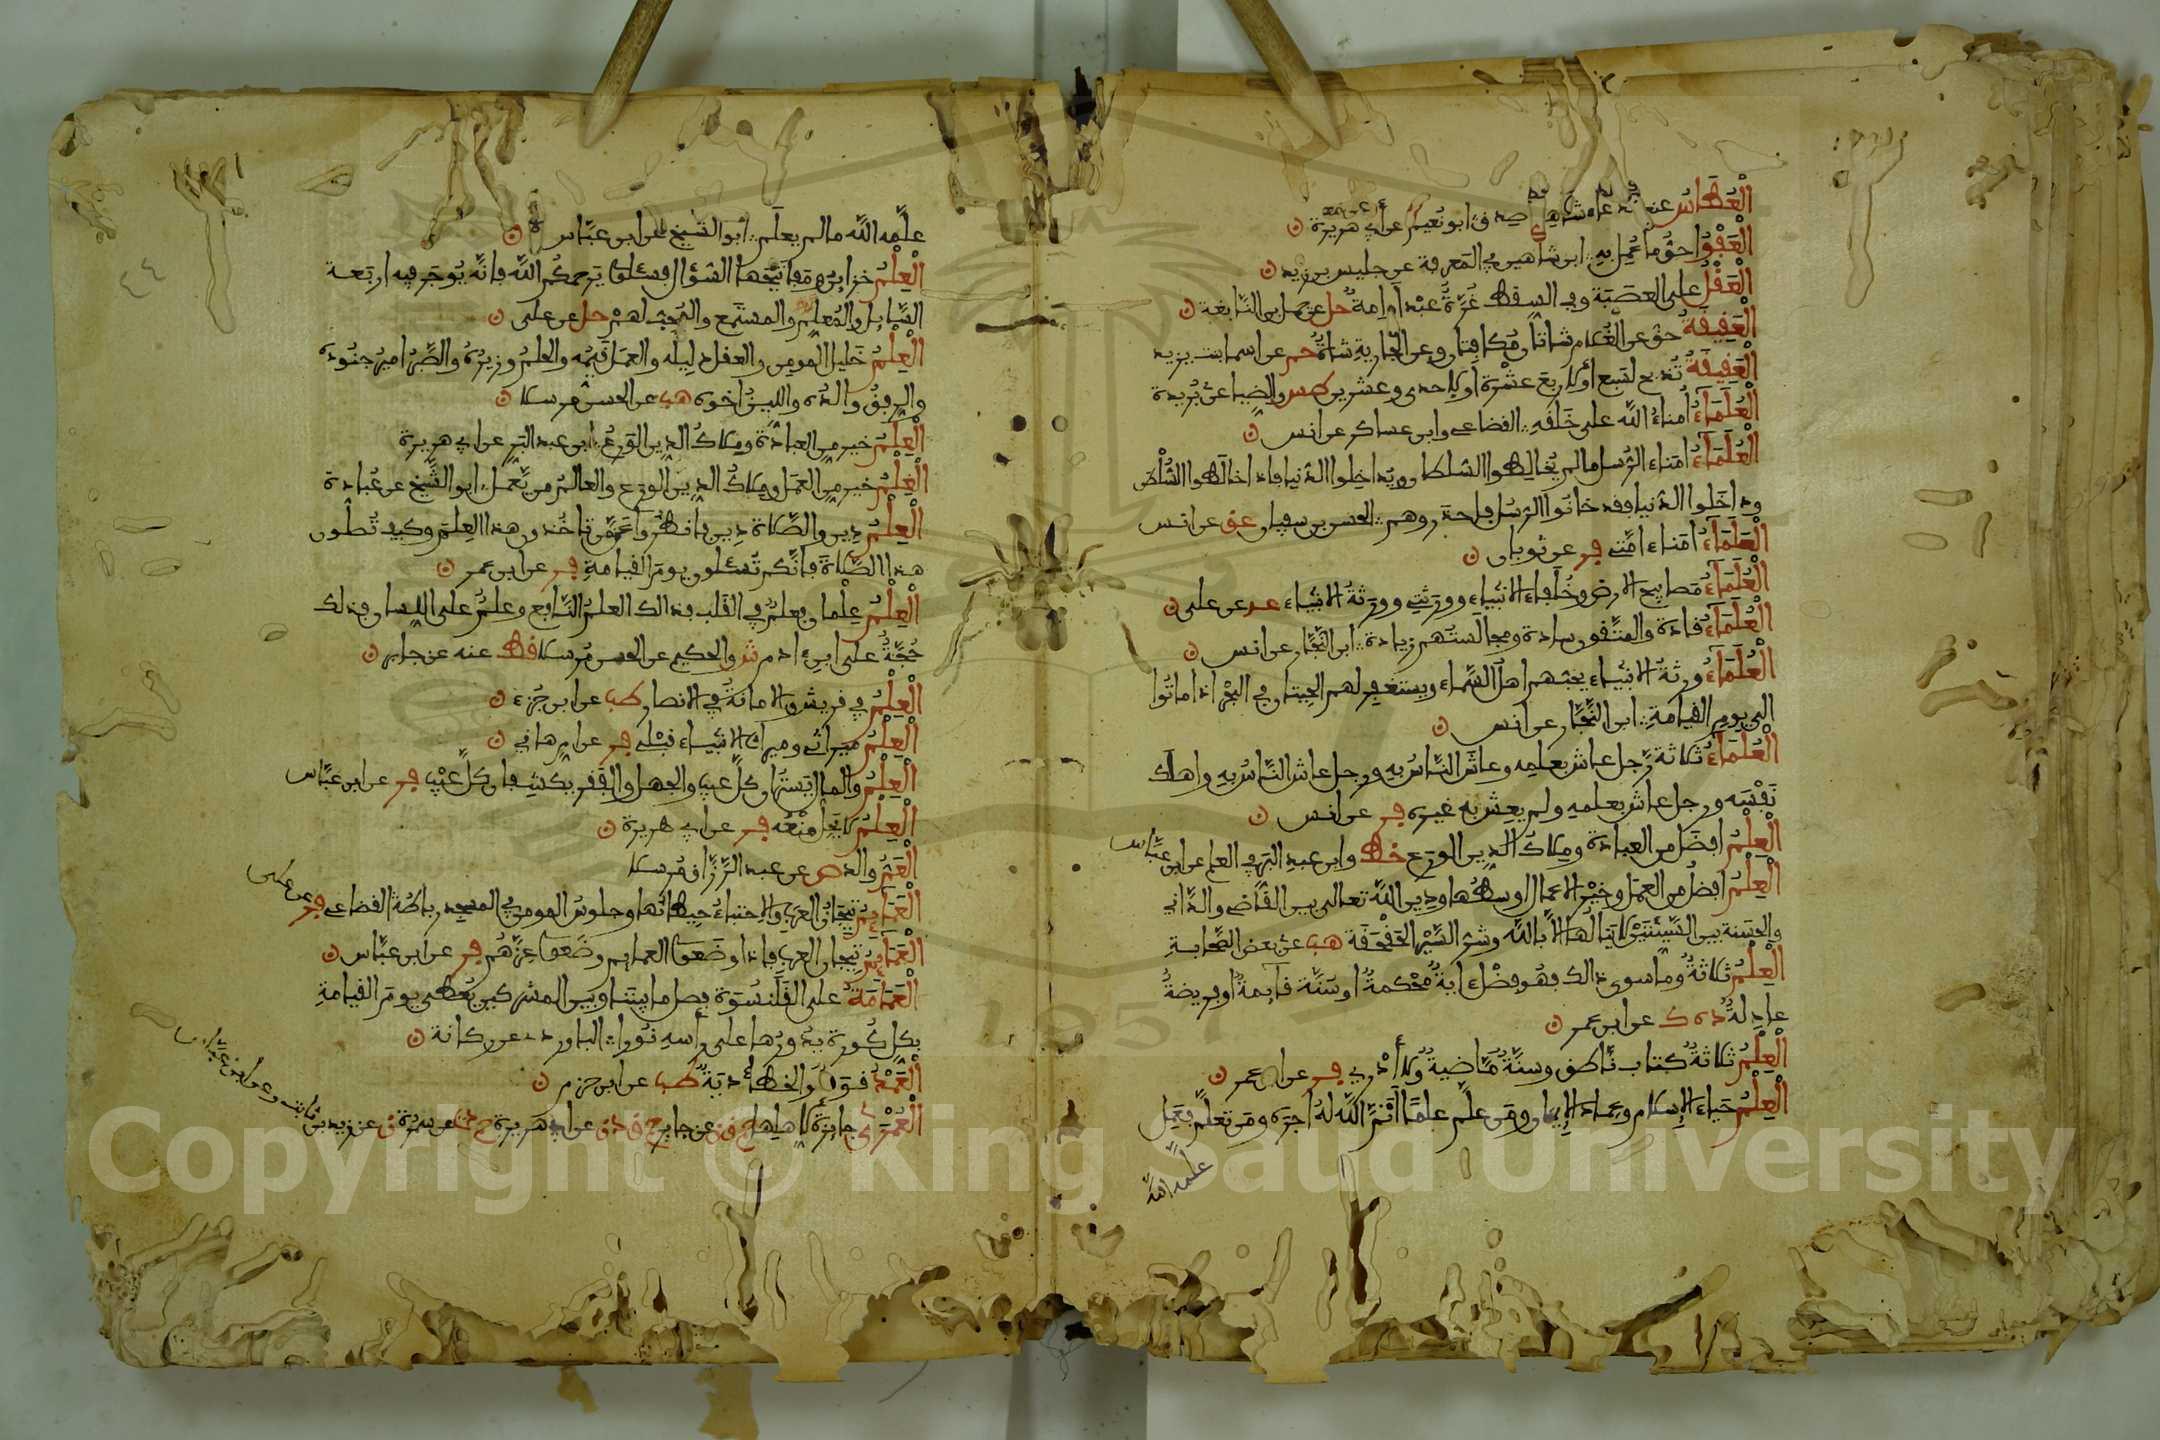 الْعُطَاسُ عند شاهد صدق ابو نعيم عن ابي هريرة
الْعَفْوُ احقُّ ما عُمِل بهِ ابن شاهين في المعرفة عن حليس بن زيد
الْعَقْلُ على العصَبَة وفي السِّقط غُرَّةٌ عبْد او امة طب عن حمل بن النابغة
الْعَقِيقَةُ حق عن الغُلام شاتان مُكافِئتان وعن الجارية شاةٌ حم عن اسما بنت يزيد
الْعَقِيقَةُ تُذبح لسَبع أو لاربع عشْرة أو لاحدى وعشرين طس والضيا عن بُريدة
الْعُلَمَاءُ أمناءُ الله على خَلقه القضاعي وابن عساكر عن انس
الْعُلَمَاءُ امَناء الرُّسل ما لم يُخالِطوا السُّلطان ويُداخِلوا الدُّنيا فاذا خالَطوا السُّلْطن
وداخَلوا الدُّنيا فقد خانُوا الرُّسُل فاحذروهم الحسن بن سفين عق عن انس
الْعُلَمَاءُ أمَناء امَّتي فر عن عثمن
الْعُلَمَاءُ مَصابيح الارض وخُلَفاء الانبياء وورَثتي وورثةُ الانبياء عد عن على
الْعُلَمَاءُ قادَة والمتَّقون سادة ومجالَستُهم زيادة ابن النجَّار عن انس
الْعُلَمَاءُ ورثةُ الانبياء يحبّهم اهلُ السَّماء ويستغفر لهم الحِيتان في البَحْر اذا ماتُوا
الى يوم القيامة ابن النجَّار عن انس
الْعُلَمَاءُ ثلاثة رجل عاش بعلمه وعاشَ النَّاسُ به ورجل عاش النَّاسُ به واهلك
نَفْسَه ورجل عاش بعلمه ولم يعِش به غيره فر عن انس
الْعِلْمُ افضَل من العبادة ومِلاكُ الدِّين الورَع خط وابن عبد البر في العلم عن ابن عبَّاس
الْعِلْمُ افضلُ من العمل وخَيْر الاعمال اوسطُها ودِين الله تعالى بين القاسي والغَالي
والحَسَنة بين السَّيئَتين لا يَنالُها الا بالله وشرّ السَّيْر الحَقْحَقة هب عن بعض الصَّحابة
الْعِلْمُ ثلاثةٌ وما سوى ذالك فهُو فضْل ءايةٌ مُحْكَمةٌ او سنَّة قايمةٌ او فريضةٌ
عادِلةٌ د ه ك عن ابن عمر
الْعِلْمُ ثلاثةٌ كُتاب ناطق وسنَّةٌ مَّاضيةٌ ولا أدْري فر عن ابن عمر
الْعِلْمُ حَيَاة الاِسلام وعماد الاِيمان ومَن علَّم علمًا أتمَّ الله لهُ أجرَه ومَن تعلَّم فعمِل
علَّمه الله
علَّمه الله ما لم يعلَم ابو الشَّيخ عن ابن عبَّاس
الْعِلْمُ خزاين ومِفاتيحها السُّؤال فسئلوا يَرحمكم الله فانَّه يُوجَر فيه اربَعة
السَّايل والمُعلِّم والمستَمع والمُحِبّ لهمْ حل عن على
الْعِلْمُ خَليل المومن والعقل دليله والعمَل قَيِّمه والحلمُ وزيرُه والصَّبر اميرُ جنُوده
والرفقُ والدُه واللينُ اخوه هب عن الحسن مرسلا
الْعِلْمُ خير من العبادة ومِلاكُ الدين الوَرع ابن عبد البَر عن ابي هريرة
الْعِلْمُ خير من العمَل ومِلاكُ الدين الورَع والعالمُ من يَّعمل ابو الشَّيخ عن عُبادة
الْعِلْمُ دين والصَّلاة دِين فانظرُوا عَمَّن تاخُذون هذا العِلمَ وكيف تُصلُّون
هذا الصَّلاة فانَّكم تُسئلون يومَ القيامةِ فر عن ابن عمر
الْعِلْمُ عِلْمان فعِلمٌ في القَلب فذالك العلمُ النَّافع وعِلمٌ على اللِّسان فذلك
حُجَّةُ على ابن ءادم ش والحكيم عن الحسن مُرسلا خط عنه عن جابر
الْعِلْمُ في قريش والامانةُ في الانصار طب عن ابن جُزء
الْعِلْمُ ميراثي وميراث الانبياء قبْلي فر عن ام هاني
الْعِلْمُ والمال يَستُران كلَّ عيب والجهل والفَقر يكشِفان كلَّ عيْب فر عن ابن عبَّاس
الْعِلْمُ لا يَحل مَنْعُه فر عن ابي هريرة
الْعَمُّ والد ص عن عبد الله الورَّاق مُرسلا
الْعَمَايِمُ تيجانُ العرَب والاحتباءُ حِيطانُها وجلوسُ المومن في المسجد رباطُه القضاعي فر عن على
الْعَمَايِمُ تِيجان العرب فاذا وضَعوا العمايم وضَعوا عِزَّهُم فر عن ابن عبَّاس
الْعَمَامَةُ على القَلَنسُوَة فصل ما بيننا وبين المشركين يُعطى يومَ القيامةِ
بكلّ كُورة يدُورُها على رأسه نُورا الباوردى عن ركانة
الْعَمْدُ قوَدٌ والخطأ دِيَةٌ طب عن ابن حزم
الْعُمْرَى جايزةٌ لاهلِها حم ق ن عن جابر حم ق د ن عن ابي هريرة حم د ت عن سمُرة ن عن زيد بن ثابت وعن ابن عبَّاس